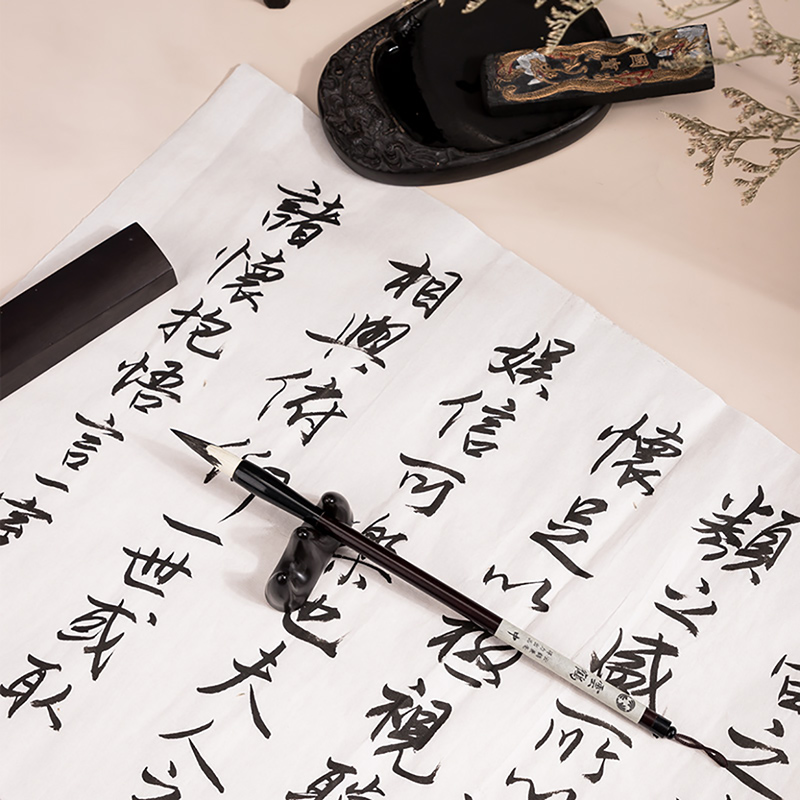 宙之
類之盛所以
懷足以極視聽
娛信可樂也夫人之
相與俯仰一世或取
諸懷抱悟言一室
雲鶴
中